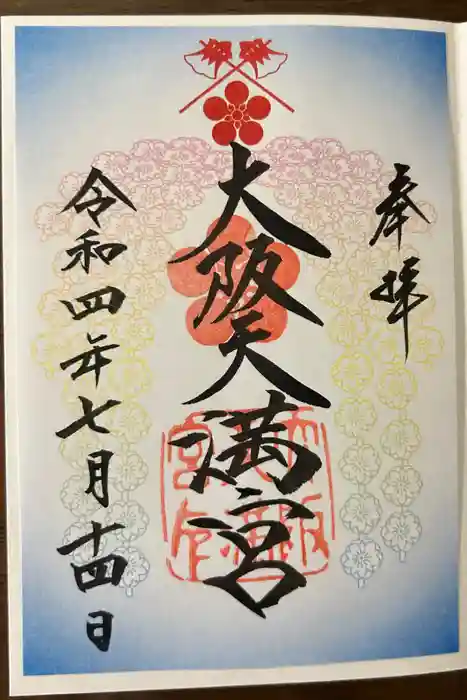 奉拝
大阪天満宮
令和四年七月十四日